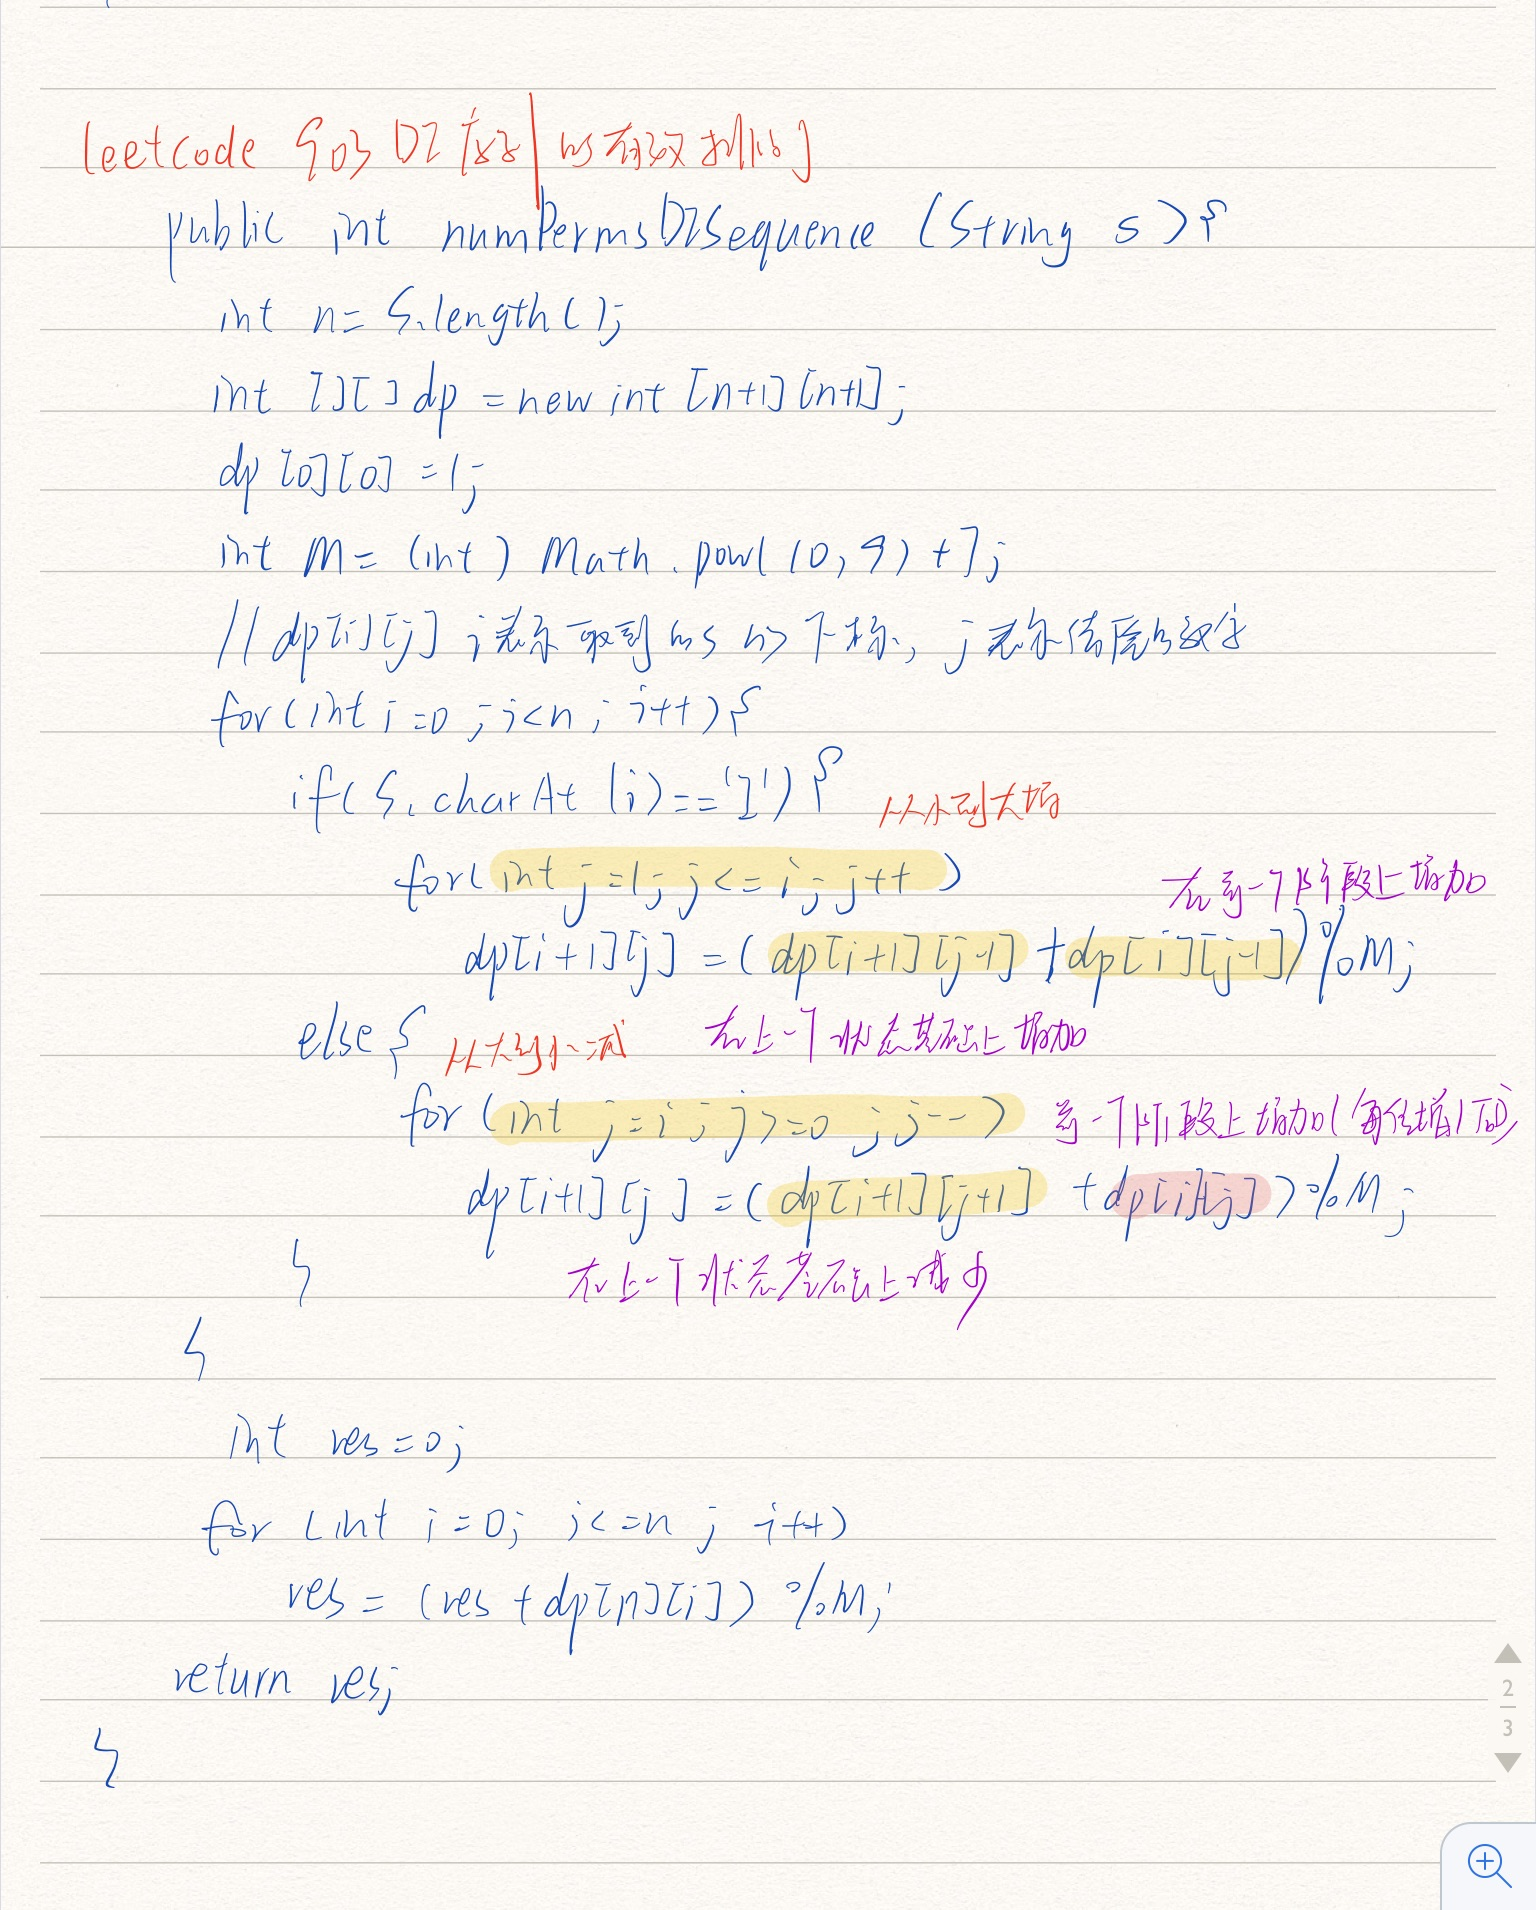 leetcode 903 DI序列的有效排列
public int numPermsDISequence (String s){
int n= S.length();
int [][] dp = new int [n+1][n+1];
dp[0][0] =1;
int M= (int) Math.pow(10,9)+7;
//dp[i][j] i表示取到的S的下标, j表示结尾的数字
for(int i=0;i<n; i++){
if(S.charAt(i)=='I'){ 从小到大增
for(int j=1; j<=i; j++)
在前一个阶段上增加
dp[i+1][j] =(dp[i+1][j-1] +dp[i][j-1])%M;
else{ 从大到小减 在上一个状态基础上增加
for(int j=i; j>=0; j--) 前一个阶段上增加
dp[i+1][j] =(dp[i+1][j+1] +dp[i][j])%M;
} 在上一个状态基础上减少
}
int res=0;
for (int i=0; i<=n; i++)
res = (res+dp[n][i]) %M;
return res;
}
2
3